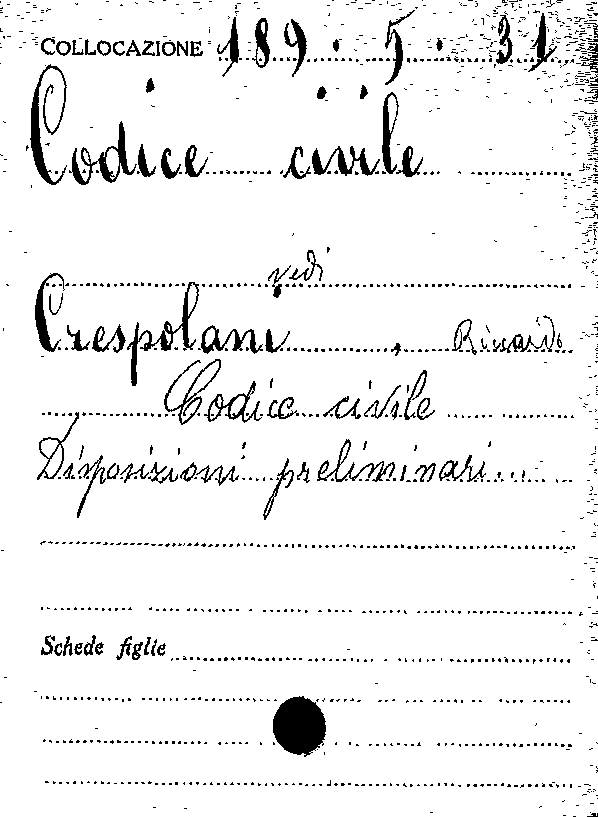 COLLOCAZIONE 189 · 5 · 31
Codice civile
vedi
Crespolani, Riccardo
Codice civile
Disposizioni preliminari...
Schede figlie